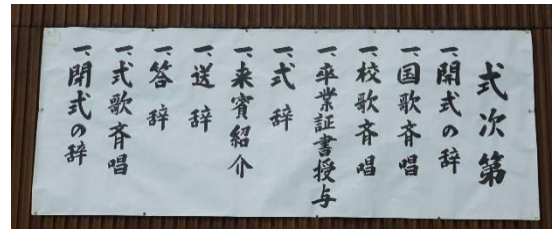 式次第
一、開式の辞
一、国歌斉唱
一、校歌斉唱
一、卒業証書授与
一、式辞
一、来賓紹介
一、送辞
一、答辞
一、式歌斉唱
一、閉式の辞